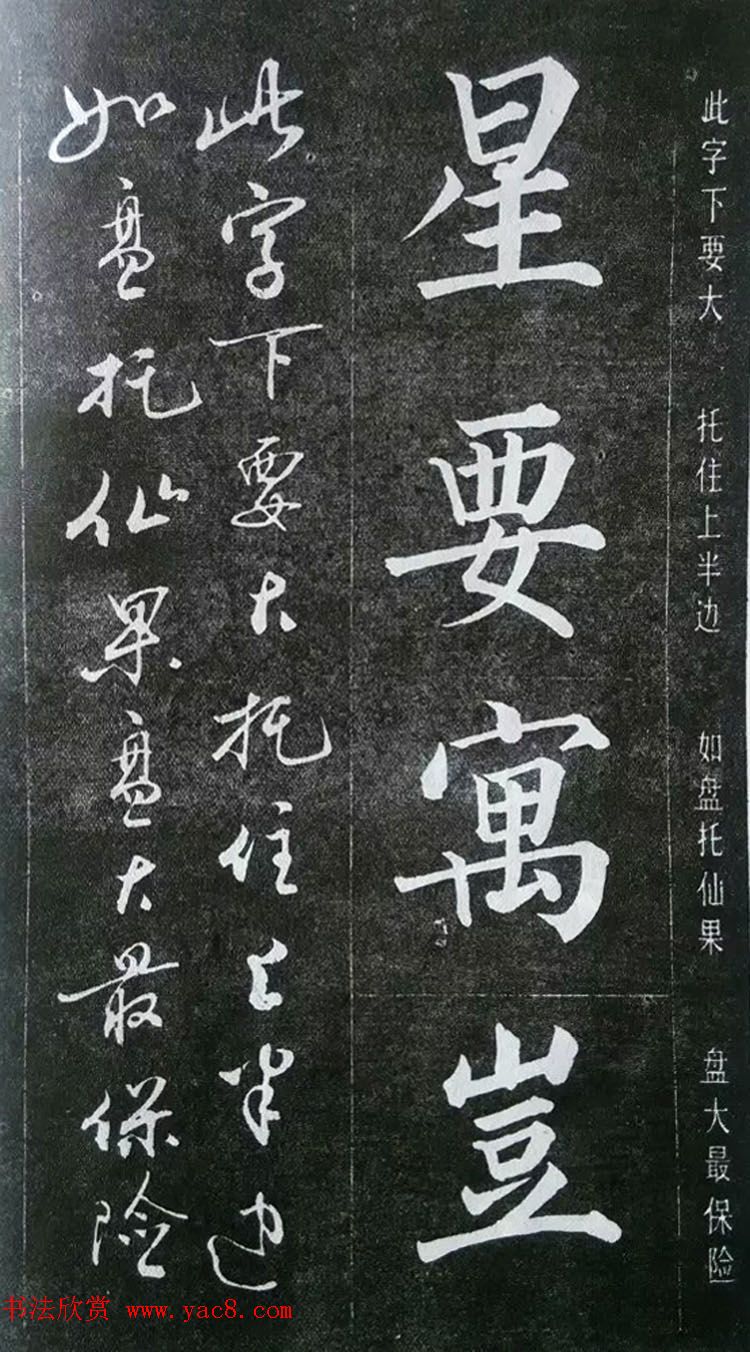 此字下要大 托住上半边 如盘托仙果 盘大最保险
星要寓岂
此字下要大托住上半边
如盘托仙果盘大最保险
书法欣赏 www.yac8.com